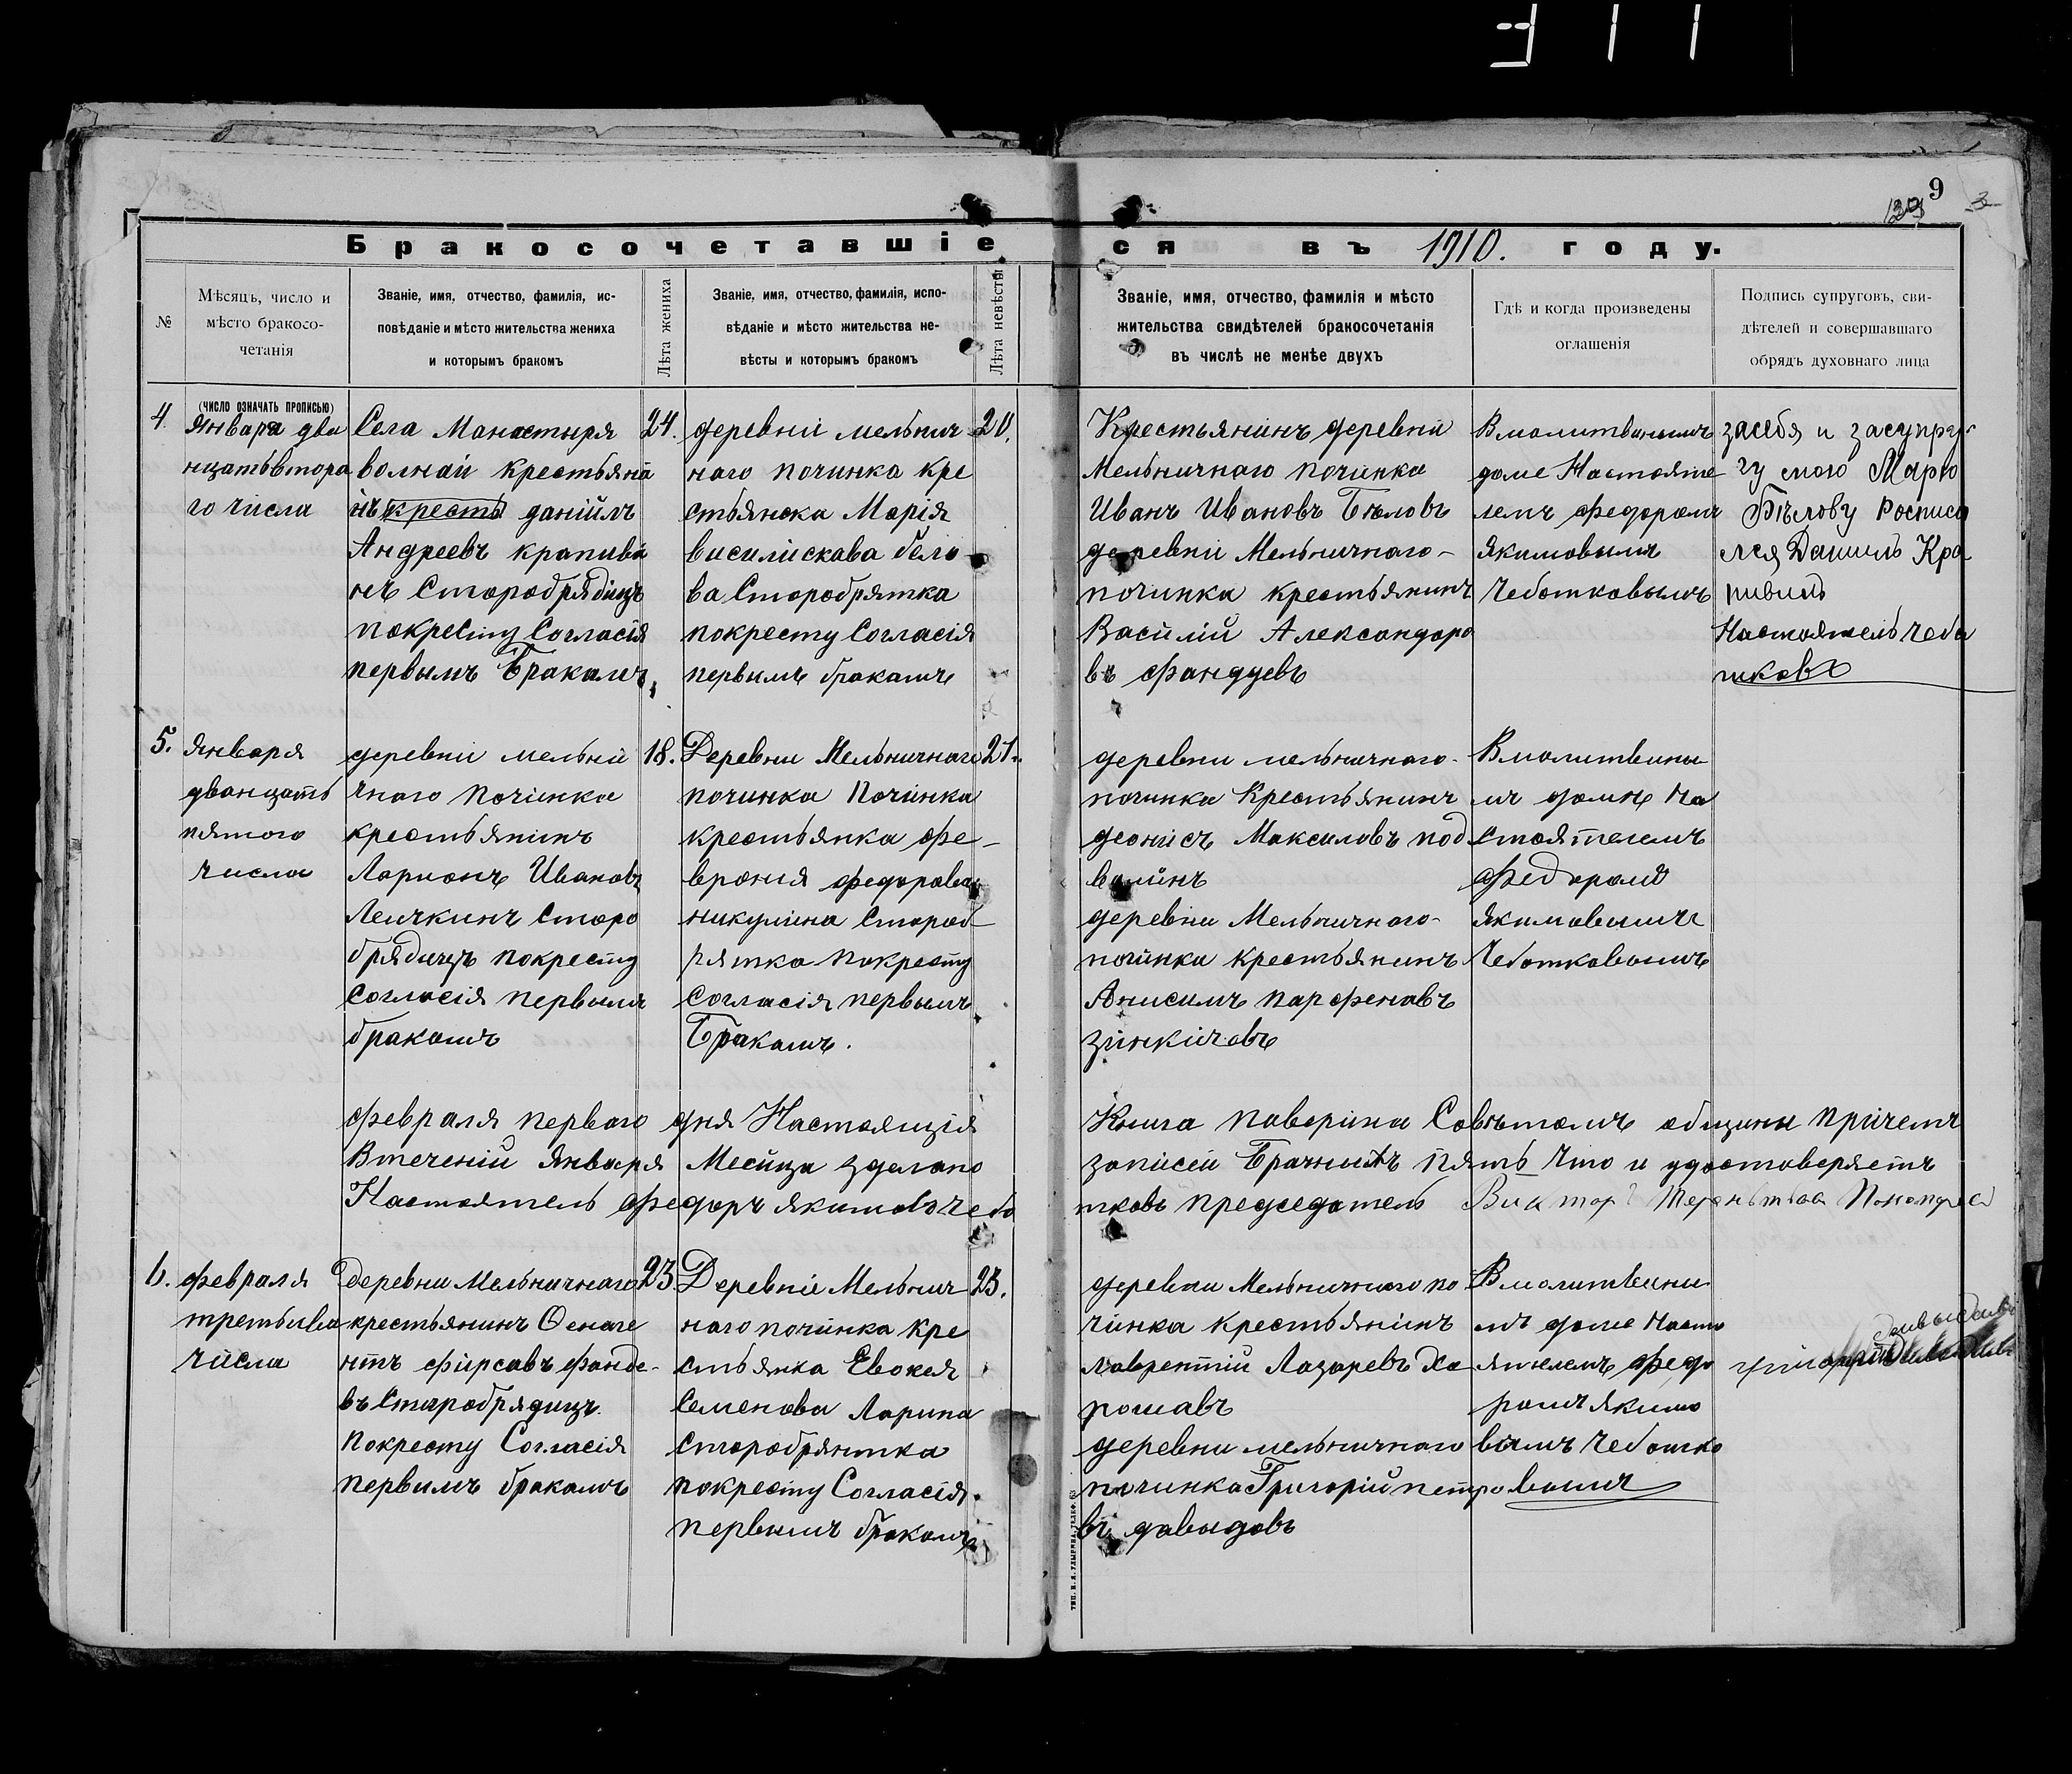 9
Бракосочетавшіеся въ 1910. году.
№
Мѣсяцъ, число и
мѣсто бракосо-
четанія
Званіе, имя, отчество, фамилія, ис-
повѣданіе и мѣсто жительства жениха
и которымъ бракомъ
Лѣта жениха
Званіе, имя, отчество, фамилія, испо-
вѣданіе и мѣсто жительства не-
вѣсты и которымъ бракомъ
Лѣта невѣсты
Званіе, имя, отчество, фамилія и мѣсто
жительства свидѣтелей бракосочетанія
въ числѣ не менѣе двухъ
Гдѣ и когда произведены
оглашенія
Подпись супруговъ, сви-
дѣтелей и совершавшаго
обрядъ духовнаго лица
(число означать прописью)
4.
Января два
нцатьвтора
го числа
Села Манастыря
волнай крестьяни
нъ кресть даніилъ
Андреевъ крапиви
нъ Старобрядицъ
покресту Согласія
первымъ Бракамъ
24.
деревни мельнич
наго починка кре
стьянска Марія
василискава бело
ва Старобрятка
покресту Согласія
первымъ бракамъ
20.
Крестьянинъ деревни
Мельничнаго починка
Иванъ Ивановъ Бѣловъ
деревни Мельничнаго-
починка крестьянинъ
Василій Александро
въ Фандуевъ
Вмолитвинымъ
доме Настояте
лемъ Федоромъ
Якимовымъ
Чеботковымъ
засебя и засупру
гу мою Марю
Бѣлову Росписа
лся Данилъ Кра
пивинъ
Настоятель Чебо
тковъ
5.
Января
дванцать
пятого
числа
деревни мельни
чнаго Починка
крестьянинъ
Ларионъ Ивановъ
Лемкинъ Старо
брядицъ покресту
Согласія первымъ
бракамъ
18.
Деревни Мельничнаго
починка Починка
крестьянка Фе-
врония Федорова
никулина Староб-
рятка покресту
Согласія первымъ
Бракамъ.
21.
деревни мельничнаго-
починка Крестьянинъ
деонисъ Максимовъ под
валинъ
деревни Мельничнаго-
починка крестьянинъ
Анисимъ парфенавъ
зинкичевъ
Вмолитвины
мъ доме На
стоятелемъ
Федоромъ
якимовымъ
Чеботковымъ
Февраля перваго дня Настоящія Книга паверина Совѣтомъ общины причемъ
Втечений Января Месица зделано записей Брачныхъ пять Что и удостоверяетъ
Настоятель Федоръ якимовъ Чебо тковъ председатель Викторъ
6.
Февраля
третьива
числа
деревни Мельничнаго
крестьянинъ
Фирсавъ Фанде-
въ Старобрядицъ
Покресту Согласія
первимъ бракамъ
23.
Деревни Мельнич
наго починка кре
стьянка Евокея
Семенова Ларина
Старобрянтка
покресту Согласія
первымъ бракамъ
23.
деревни Мельничнаго по
чинка крестьянинъ
лаврентий Лазаревъ Хо
рошавъ
деревни мельничнаго
починка Григорий петро
въ давыдовъ
Вмолитвины
мъ доме Насто
ятелемъ Федо
ромъ якимо
вымъ Чеботко
вымъ